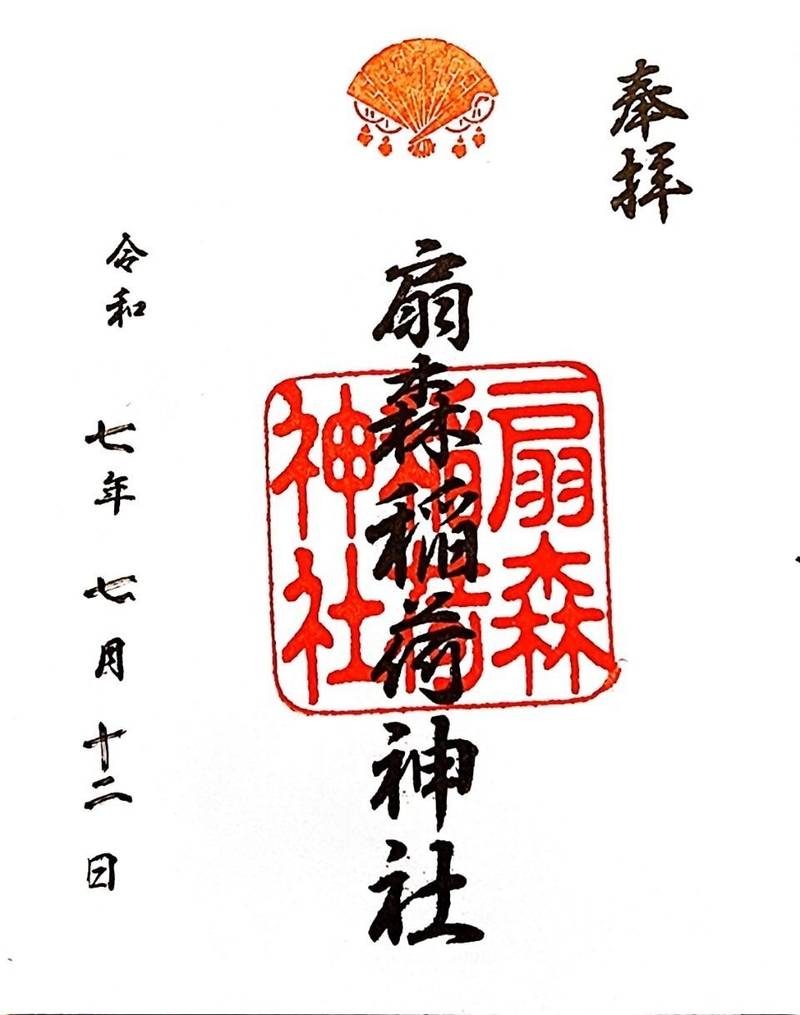 奉拝
扇森稲荷神社
扇森
稲荷
神社
令和 七年 七月 十二日